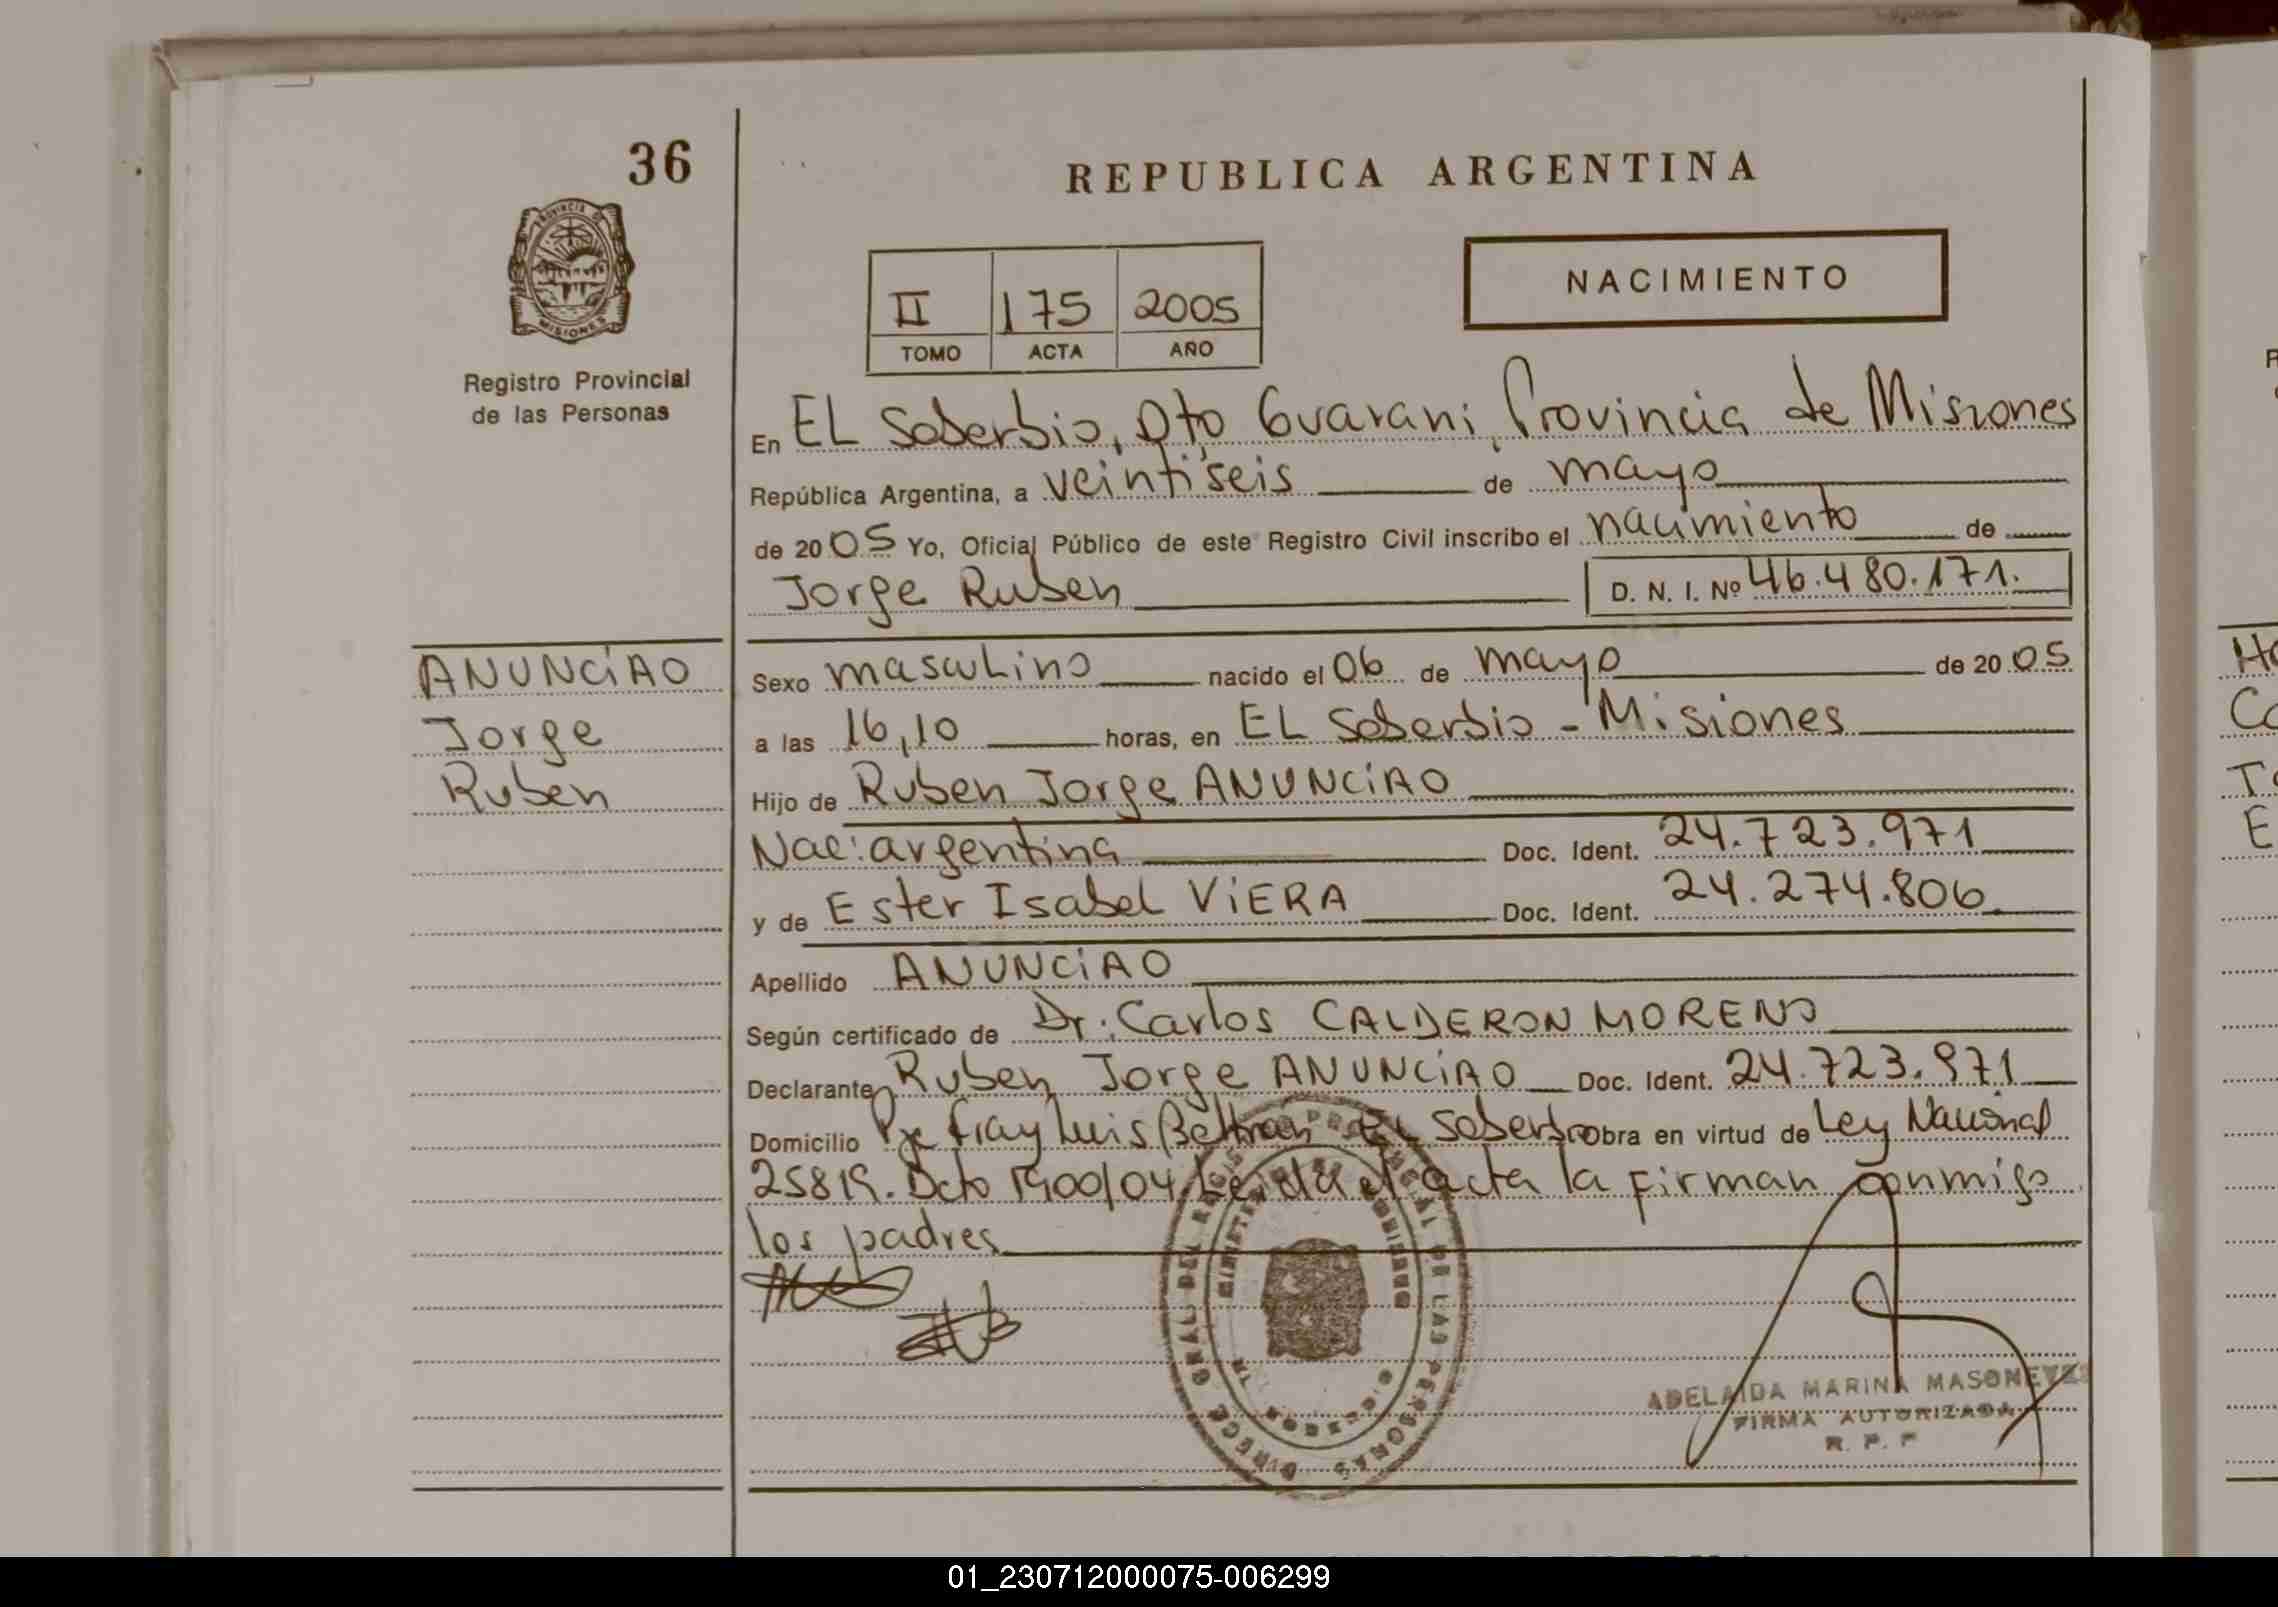 36
REPUBLICA ARGENTINA
PROVINCIA DE
MISIONES
Registro Provincial
de las Personas
NACIMIENTO
II 175 2005
TOMO ACTA AÑO
En EL Soberbio, Dto Guarani, Provincia de Misiones
República Argentina, a veintiseis de mayo
de 2005 Yo, Oficial Público de este Registro Civil inscribo el nacimiento de
Jorge Ruben D. N. I. Nº 46.480.171.
ANUNCiAO
Jorge
Ruben
Sexo masculino nacido el 06 de mayo de 2005
a las 16,10 horas, en EL Soberbio - Misiones
Hijo de Ruben Jorge ANUNCiAO
Nac: argentina Doc. Ident. 24.723.971
y de Ester Isabel ViERA Doc. Ident. 24.274.806
Apellido ANUNCiAO
Según certificado de Dr: Carlos CALDERON MORENO
Declarante Ruben Jorge ANUNCiAO Doc. Ident. 24.723.971
Domicilio Pje fray Luis Beltran EL Soberbio obra en virtud de Ley Nacional
25819. Dcto 1900/04 Leida el acta la firman conmigo
los padres
ADELAIDA MARINA
FIRMA AUTORIZADA
R. P. P
01_230712000075-006299